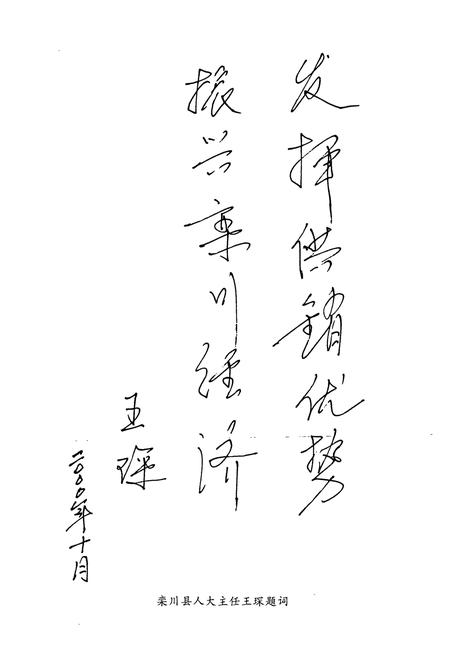 发挥供销优势
振兴栾川经济
王琛
二〇〇〇年十月
栾川县人大主任王琛题词